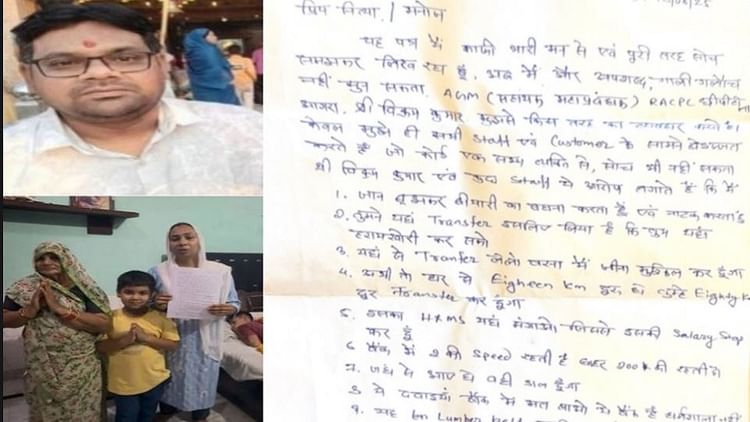 प्रिय नित्या / मनोज
यह पत्र मैं काफी भारी मन से एवं पूरी तरह सोच
समझकर लिख रहा हूँ, अब मैं और अपशब्द, गाली गलौच
नहीं सुन सकता. AGM (सहायक महाप्रबंधक) RACPC
आगरा. श्री विक्रम कुमार मुझसे किस तरह का व्यवहार करते हैं।
केवल मुझे ही सभी Staff एवं Customer के सामने बेइज्जत
करते हैं जो कोई एक सभ्य व्यक्ति से, सोच भी नहीं सकता
श्री विक्रम कुमार एवं कुछ Staff ये आरोप लगाते हैं कि मैं
1. जान बूझकर बीमारी का बहाना करता हूँ एवं नाटक करता हूँ
2. तुमने यहां Transfer इसलिए लिया है कि तुम यहाँ
हरामखोरी कर सको
3. यहां से Transfer लेलो वरना मैं जीना मुश्किल कर दूंगा
4. अभी तो घर से Eigheen km दूर हो तुम्हें Eighty km
दूर Transfer कर दूंगा
5. इसका HRMS यहां मंगाओ जिससे इसकी Salary Stop
कर दूँ
6 बैंक में 2 की Speed रहती है घर 200 की रहती है
7. जहां से आए हो वहीं भेज दूंगा
8 ये दवाइयां बैंक में मत लाओ ये बैंक है धर्मशाला नहीं
9. यह Lumber belt